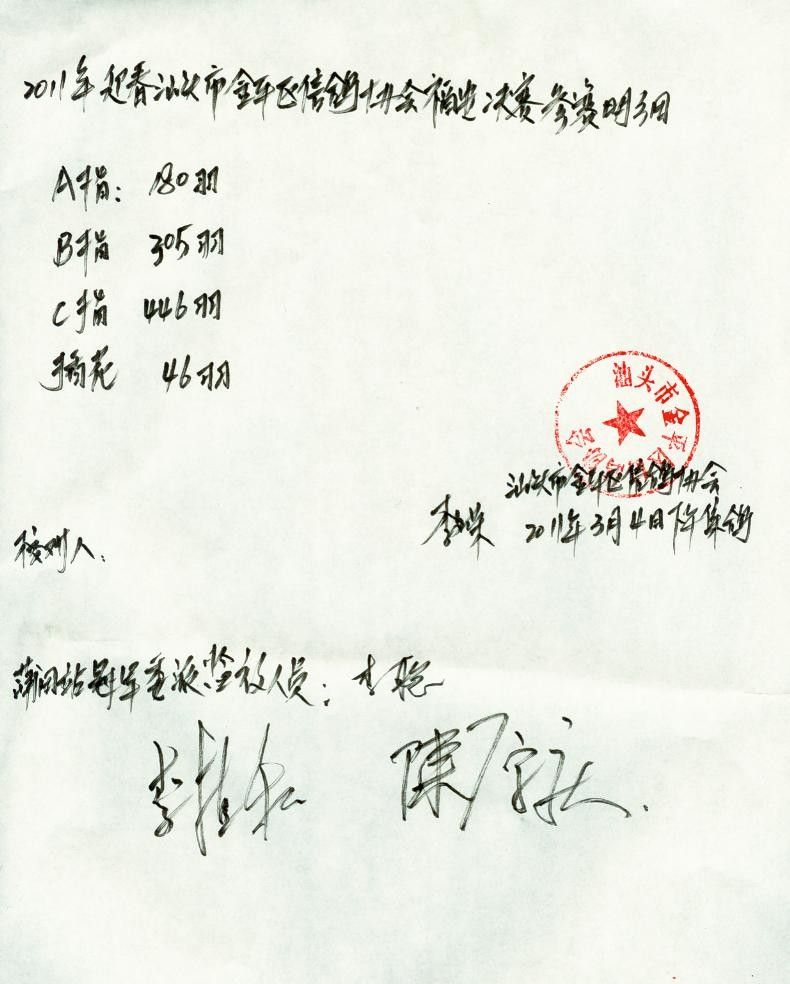 2011年迎春汕头市金平区信鸽协会福建决赛参赛明细
A指：180羽
B指 305羽
C指 446羽
插花 46羽
汕头市金平区信鸽协会
汕头市金平区信鸽协会
2011年3月4日下午集鸽
核对人：
站冠军委派监放人员：李聪
李
陈